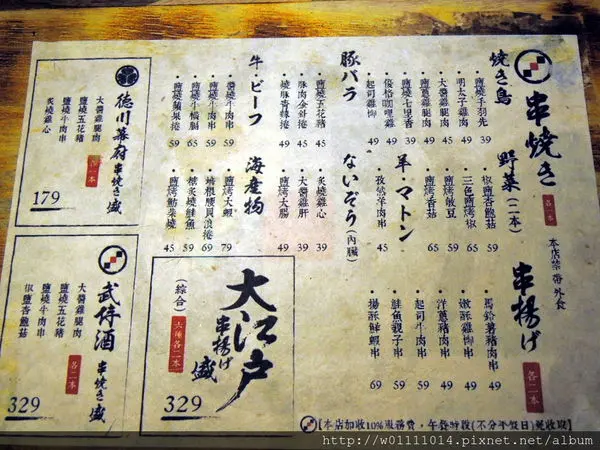 串焼き
各二本
焼き鳥
鹽燒手羽先 39
明太子雞串 49
大醬雞腿肉 45
鹽蔥雞腿肉 49
鹽燒七里香 39
優格咖哩雞 49
起司雞柳 49
豚バラ
鹽燒五花豬 45
豚肉金針捲 45
燒豚青蔥捲 49
牛・ビーフ
醬燒牛肉串 59
鹽燒牛肉串 59
鹽燒牛橫膈 65
鹽燒蘋果捲 59
野菜(二本)
椒鹽杏鮑菇 59
三色鹽烤椒 65
鹽烤敏豆 59
鹽烤香菇 65
羊・マトン
孜然羊肉串 45
ないぞう(內臟)
炙燒雞心 39
大醬雞肝 39
鹽烤大腸 49
海産物
鹽烤大蝦 79
培根腰貝浪捲 69
糖炙燒鮭魚 65
鹽烤鮎菜燒 45
本店禁帶外食
串揚げ
各二本
馬鈴薯豬肉串 49
嫩酥雞柳串 49
洋蔥豬肉串 49
起司牛肉串 59
鮭魚親子串 59
揚酥鮮蝦串 69
德川幕府
串焼き盛
各一本
大醬雞腿肉
鹽燒五花豬
鹽燒牛肉串
炙燒雞心
179
武侍酒
串焼き盛
各二本
大醬雞腿肉
鹽燒五花豬
鹽燒牛肉串
椒鹽杏鮑菇
329
大江戸
串揚げ盛
(綜合)
六種各二本
329
【本店加收10%服務費,午餐時段(不分平假日)免收取】
http://w01111014.pixnet.net/album